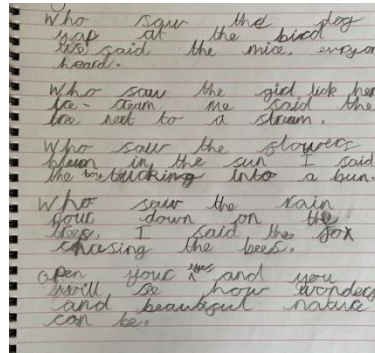 Who saw the dog
yap at the bird
said the mice, everyon
heard.
Who saw the girl lick her
Ice-cream me said the
tree next to a stream.
Who saw the flowers
bloom in the sun I said
the tucking into a bun.
Who saw the rain
pour down on the
trees, I said the fox
chasing the bees.
Open your eyes and you
will see how wonders
and beautiful nature
can be.